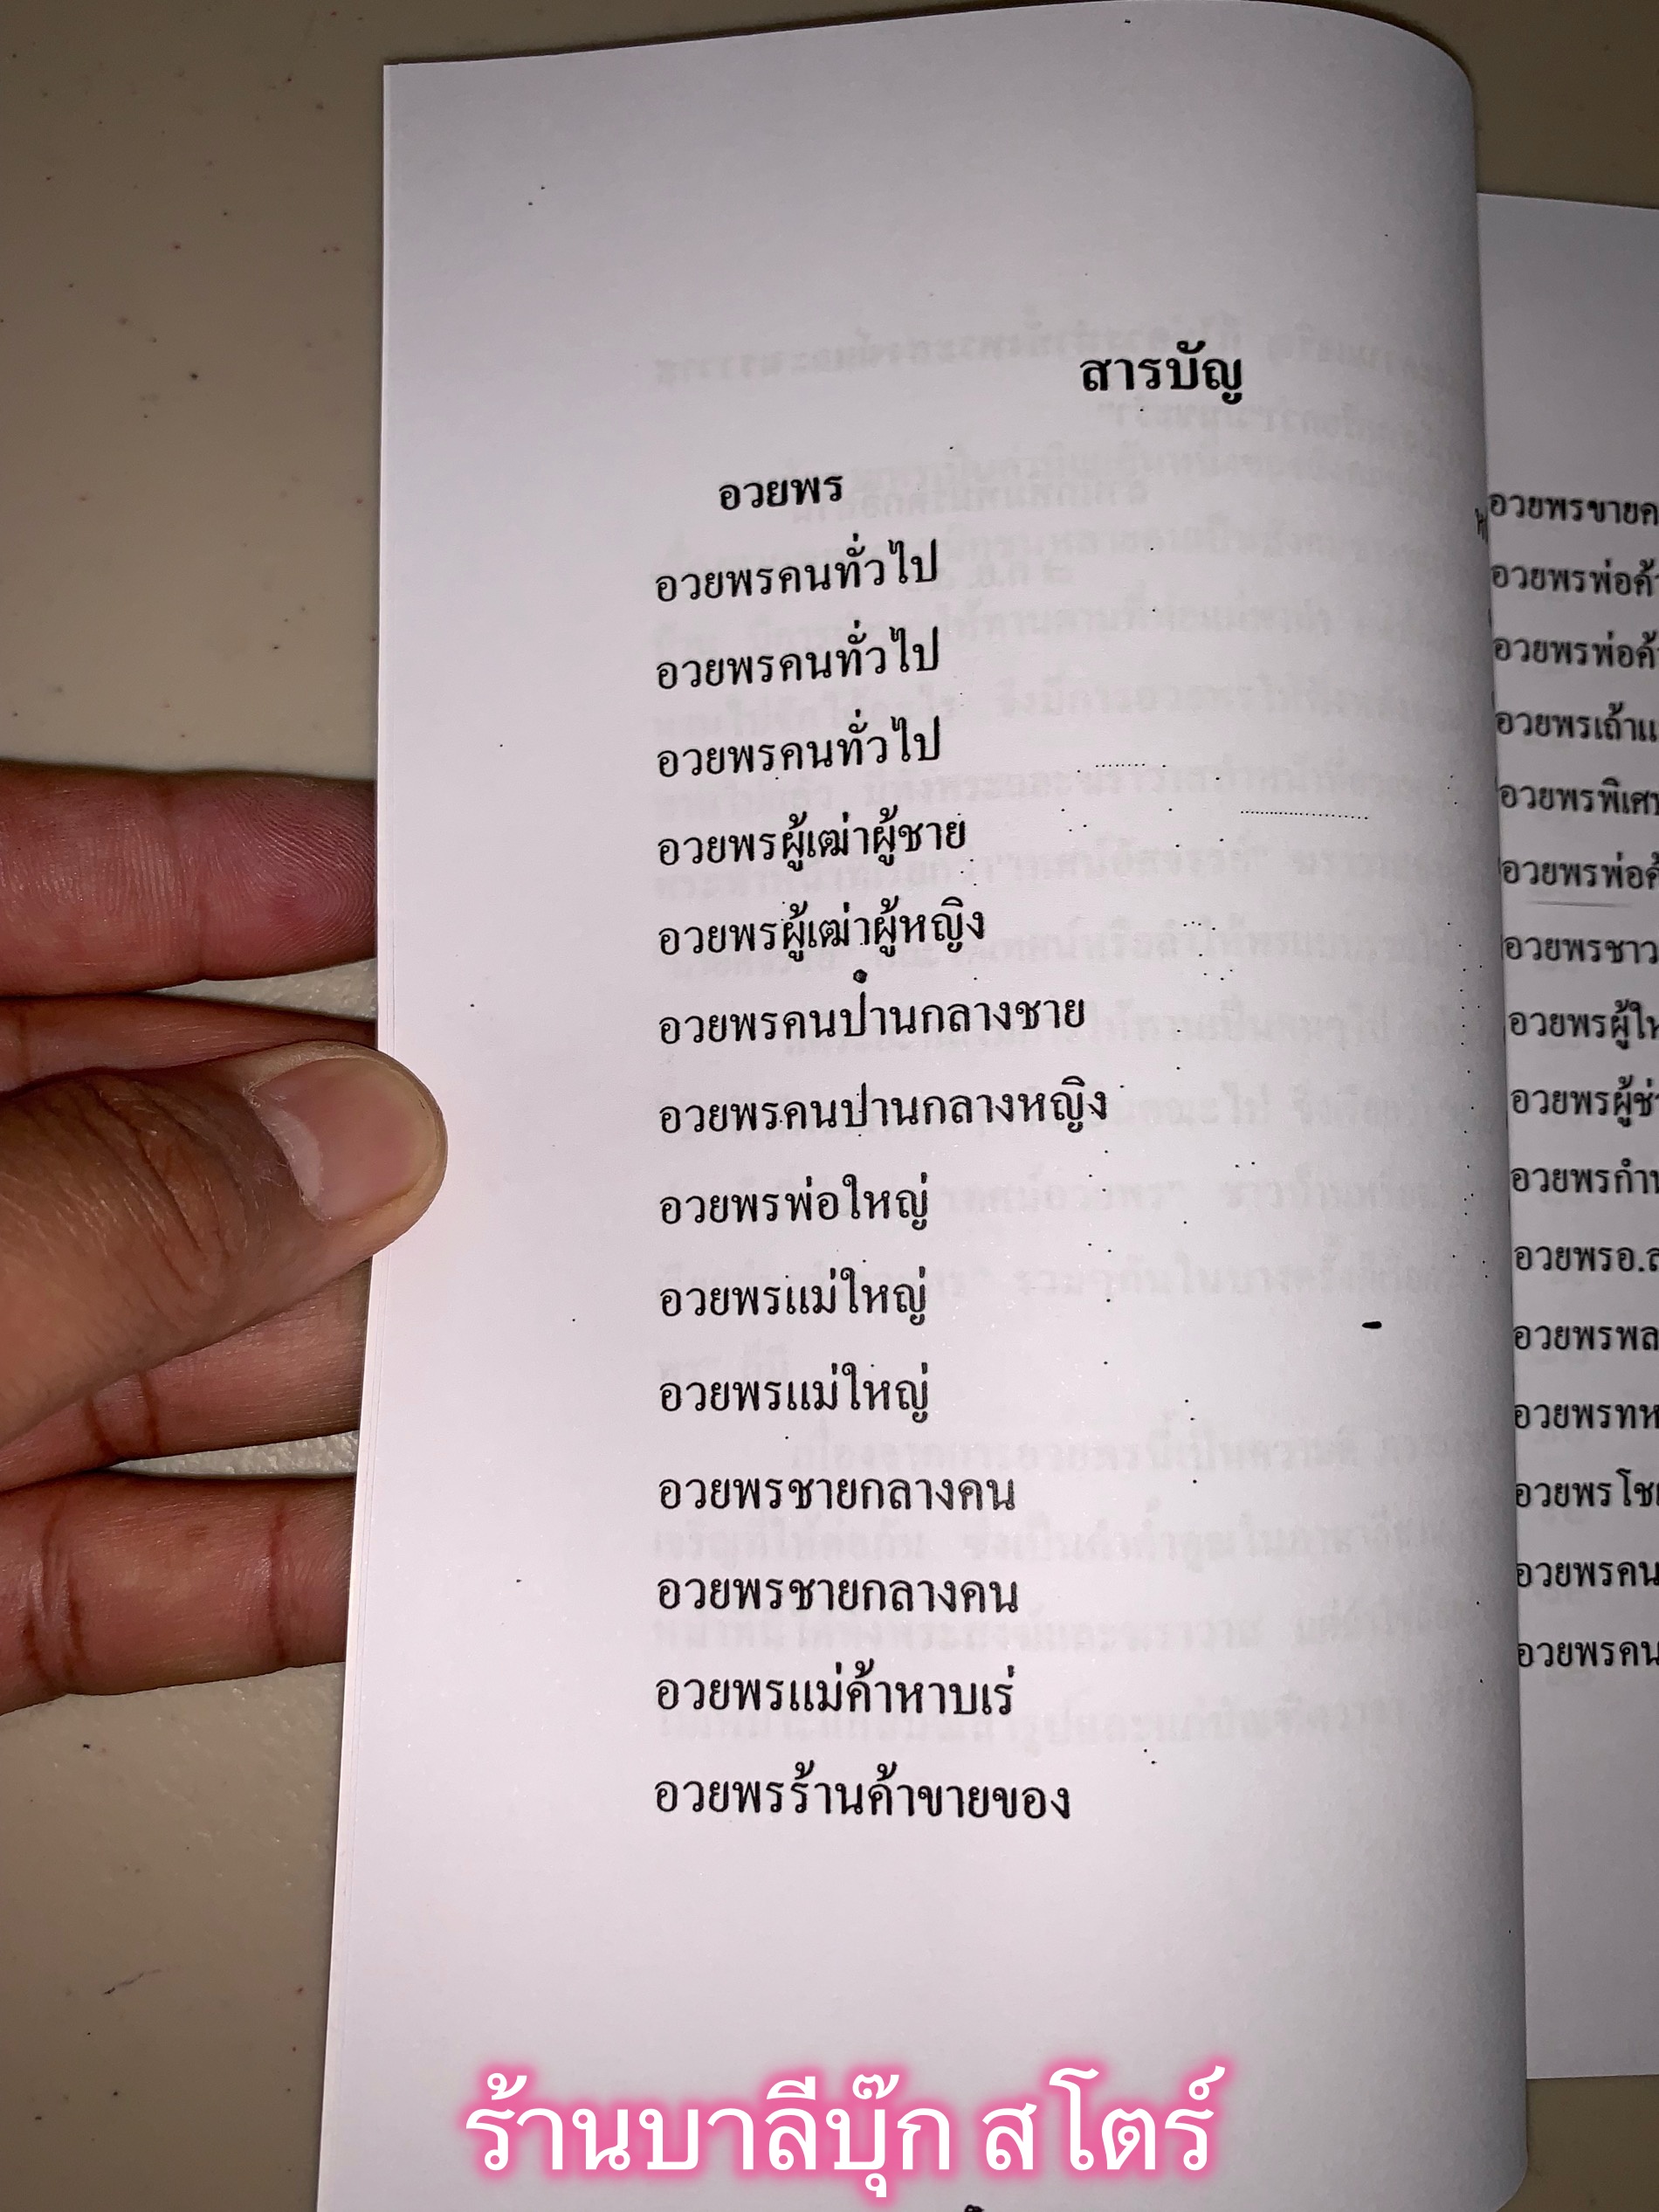 สารบัญ
อวยพร
อวยพรคนทั่วไป
อวยพรคนทั่วไป
อวยพรคนทั่วไป
อวยพรผู้เฒ่าผู้ชาย
อวยพรผู้เฒ่าผู้หญิง
อวยพรคนป่านกลางชาย
อวยพรคนปานกลางหญิง
อวยพรพ่อใหญ่
อวยพรแม่ใหญ่
อวยพรแม่ใหญ่
อวยพรชายกลางคน
อวยพรชายกลางคน
อวยพรแม่ค้าหาบเร่
อวยพรร้านค้าขายของ
อวยพรขายค
อวยพรพ่อค้า
อวยพรพ่อค้
อวยพรเถ้าแ
อวยพรพิเศ
อวยพรพ่อค้
อวยพรชาว
อวยพรผู้ให
อวยพรผู้ช่
อวยพรกำ
อวยพรอ.ส
อวยพรพล
อวยพรทห
อวยพรโช
อวยพรคน
อวยพรคน
ร้านบาลีบุ๊ก สโตร์